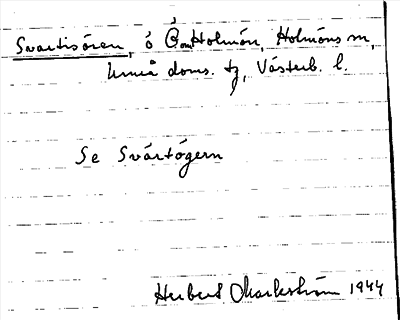 Svartisören, ö Ö om Holmön, Holmöns sn,
Umeå doms. tg, Västerb. l.
Se Svårtögern
Herbert Markström 1944